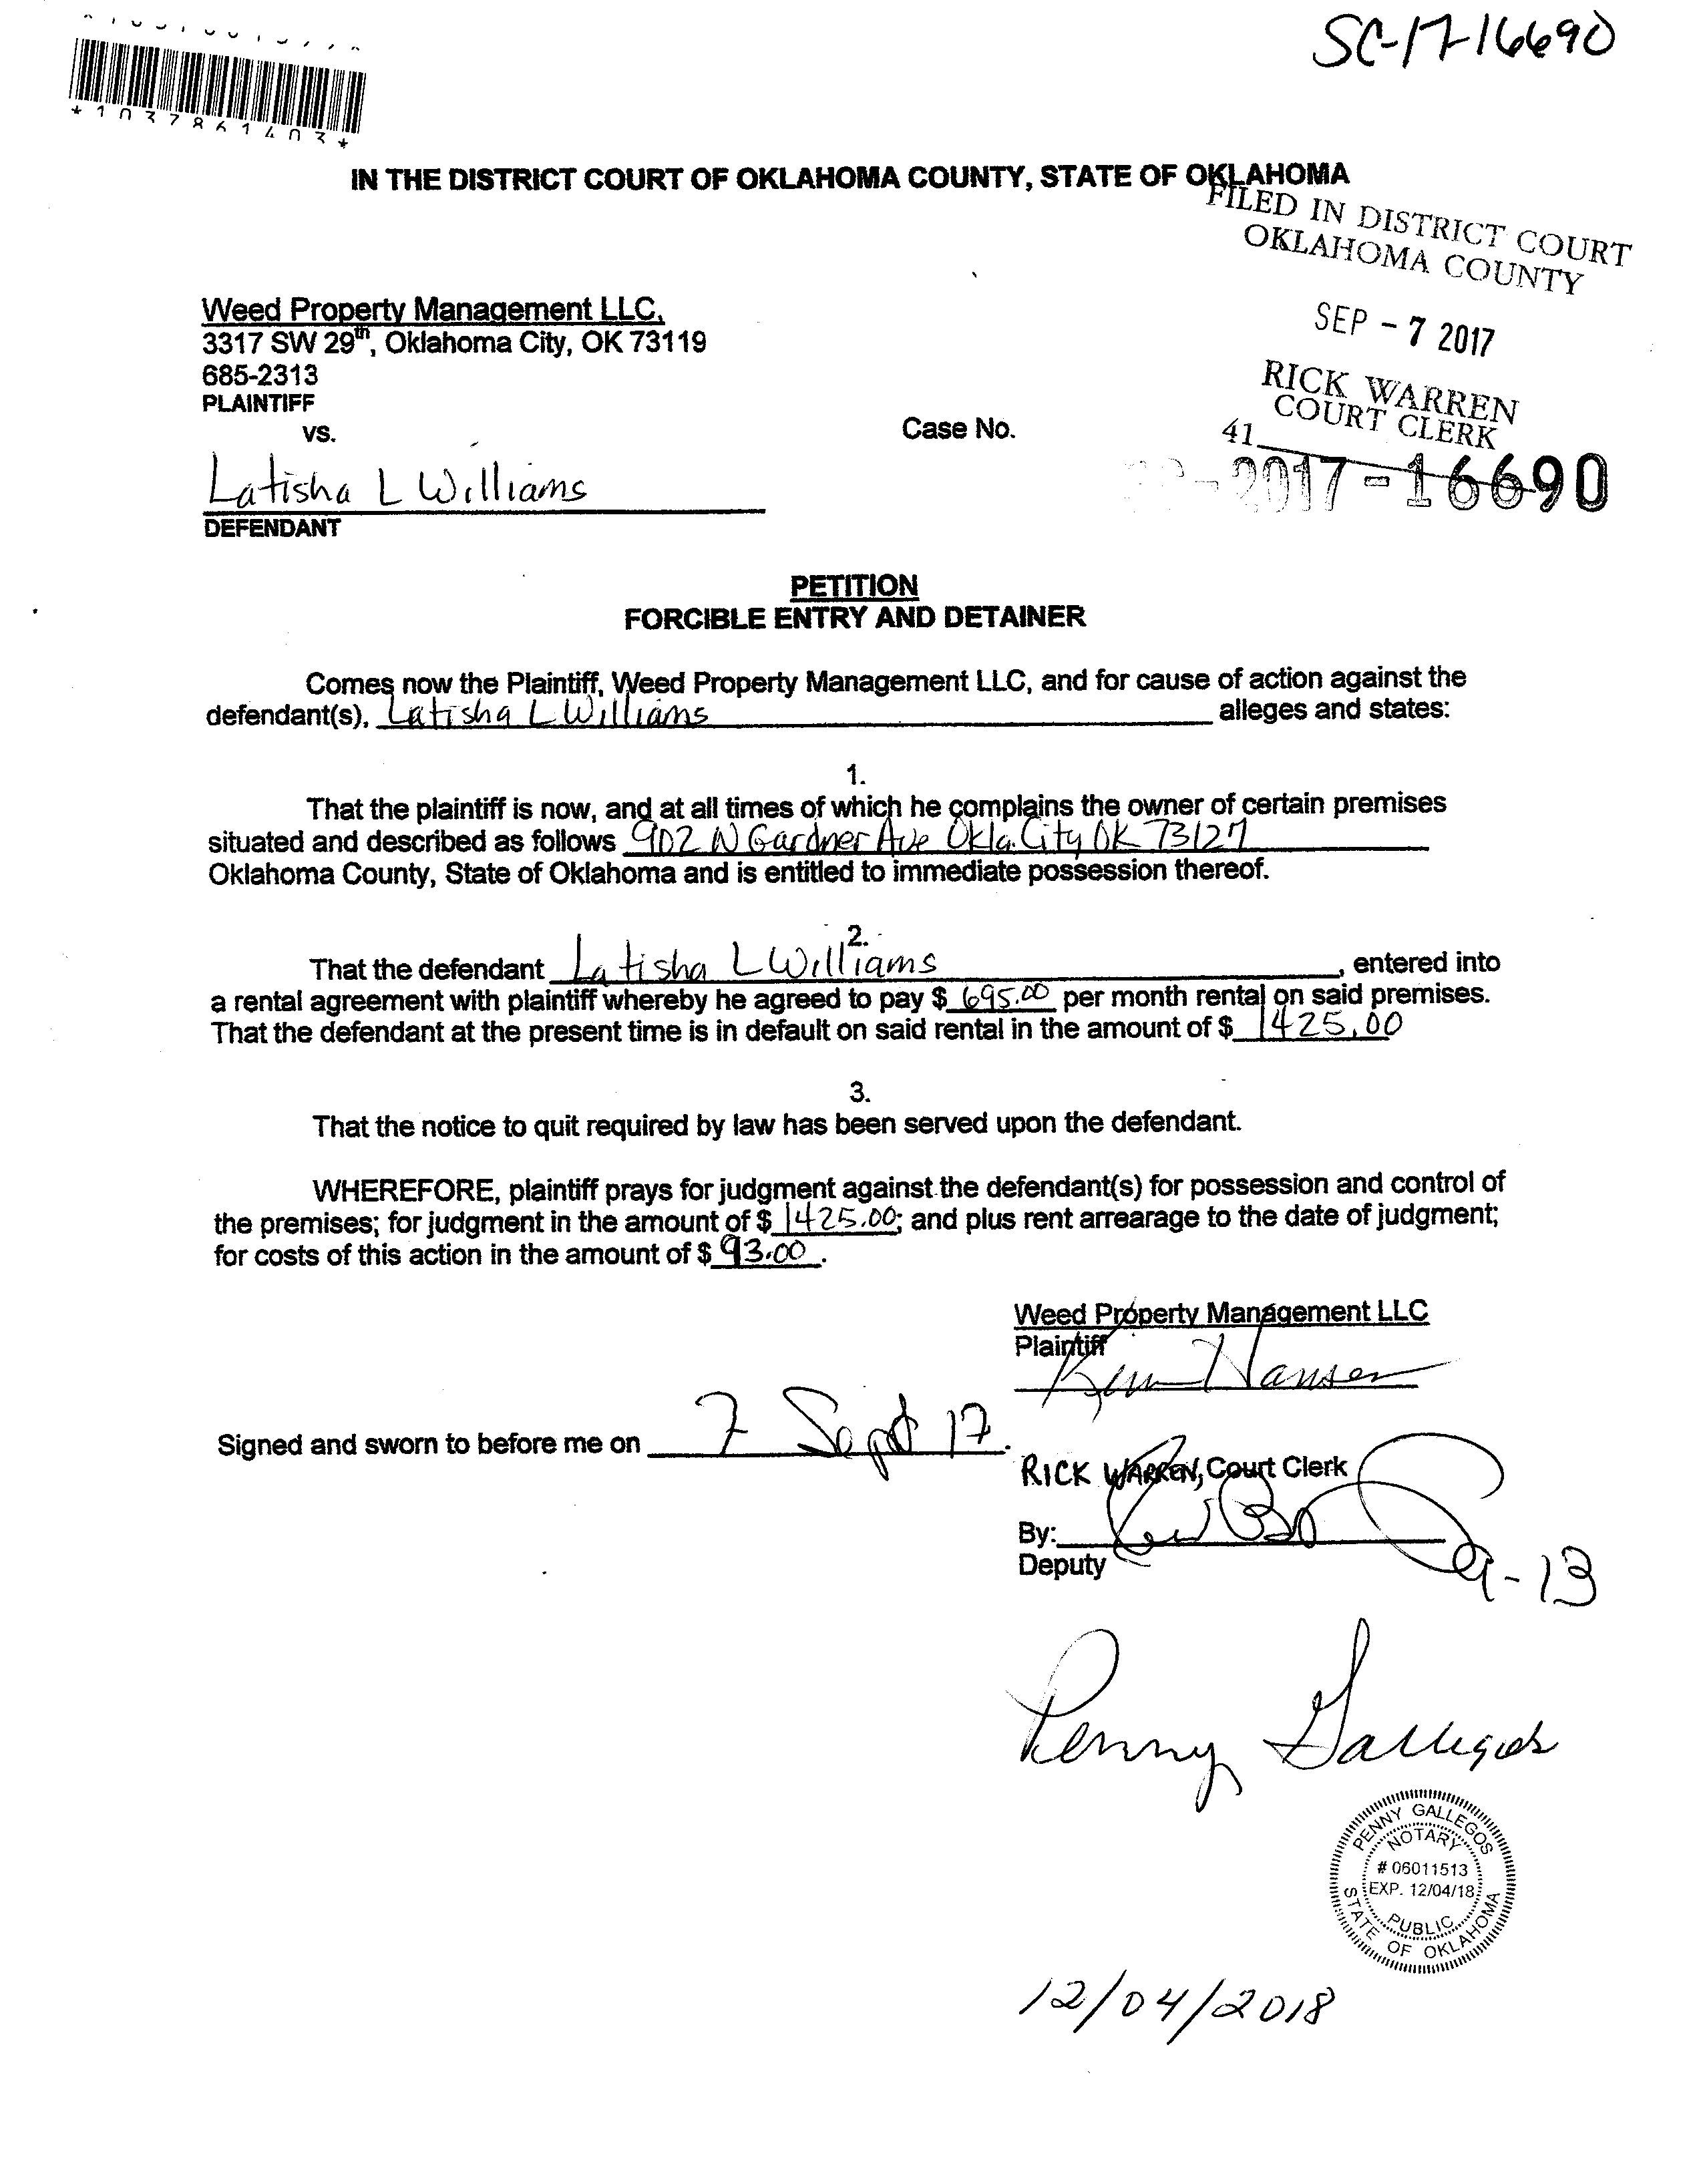 SC-17-16690
*1037861403*
IN THE DISTRICT COURT OF OKLAHOMA COUNTY, STATE OF OKLAHOMA
FILED IN DISTRICT COURT
OKLAHOMA COUNTY
SEP - 7 2017
RICK WARREN
COURT CLERK
41
Weed Property Management LLC,
3317 SW 29th, Oklahoma City, OK 73119
685-2313
PLAINTIFF
vs.
Case No.
-2017-16690
Latisha L Williams
DEFENDANT
PETITION
FORCIBLE ENTRY AND DETAINER
Comes now the Plaintiff, Weed Property Management LLC, and for cause of action against the
defendant(s), Latisha L Williams alleges and states:
1.
That the plaintiff is now, and at all times of which he complains the owner of certain premises
situated and described as follows 902 N Gardner Ave Okla. City OK 73127
Oklahoma County, State of Oklahoma and is entitled to immediate possession thereof.
2.
That the defendant Latisha L Williams, entered into
a rental agreement with plaintiff whereby he agreed to pay $ 695.00 per month rental on said premises.
That the defendant at the present time is in default on said rental in the amount of $ 1425.00
3.
That the notice to quit required by law has been served upon the defendant.
WHEREFORE, plaintiff prays for judgment against the defendant(s) for possession and control of
the premises; for judgment in the amount of $ 1425.00; and plus rent arrearage to the date of judgment;
for costs of this action in the amount of $ 93.00.
Weed Property Management LLC
Plaintiff
Hansen
Signed and sworn to before me on 7 Sept 17.
RICK WARREN, Court Clerk
By:
Deputy
9-13
Penny Gallegos
PENNY GALLEGOS
NOTARY
# 06011513
EXP. 12/04/18
PUBLIC
STATE OF OKLAHOMA
12/04/2018